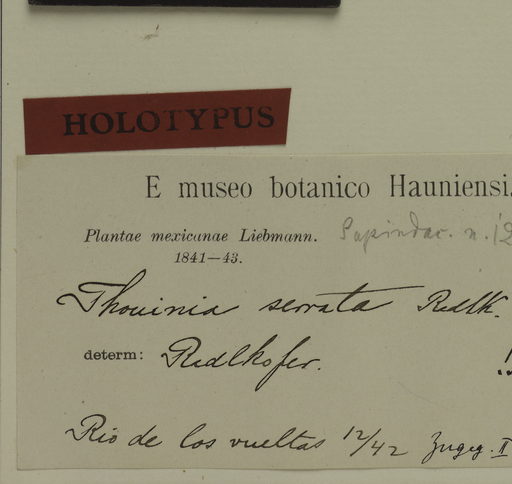 HOLOTYPUS
E museo botanico Hauniensi.
Plantae mexicanae Liebmann. Sapindac. n. 12
1841—43.
Thouinia serrata Radlk.
determ: Radlkofer. !
Rio de los vueltas 12/42 Zugeg. II